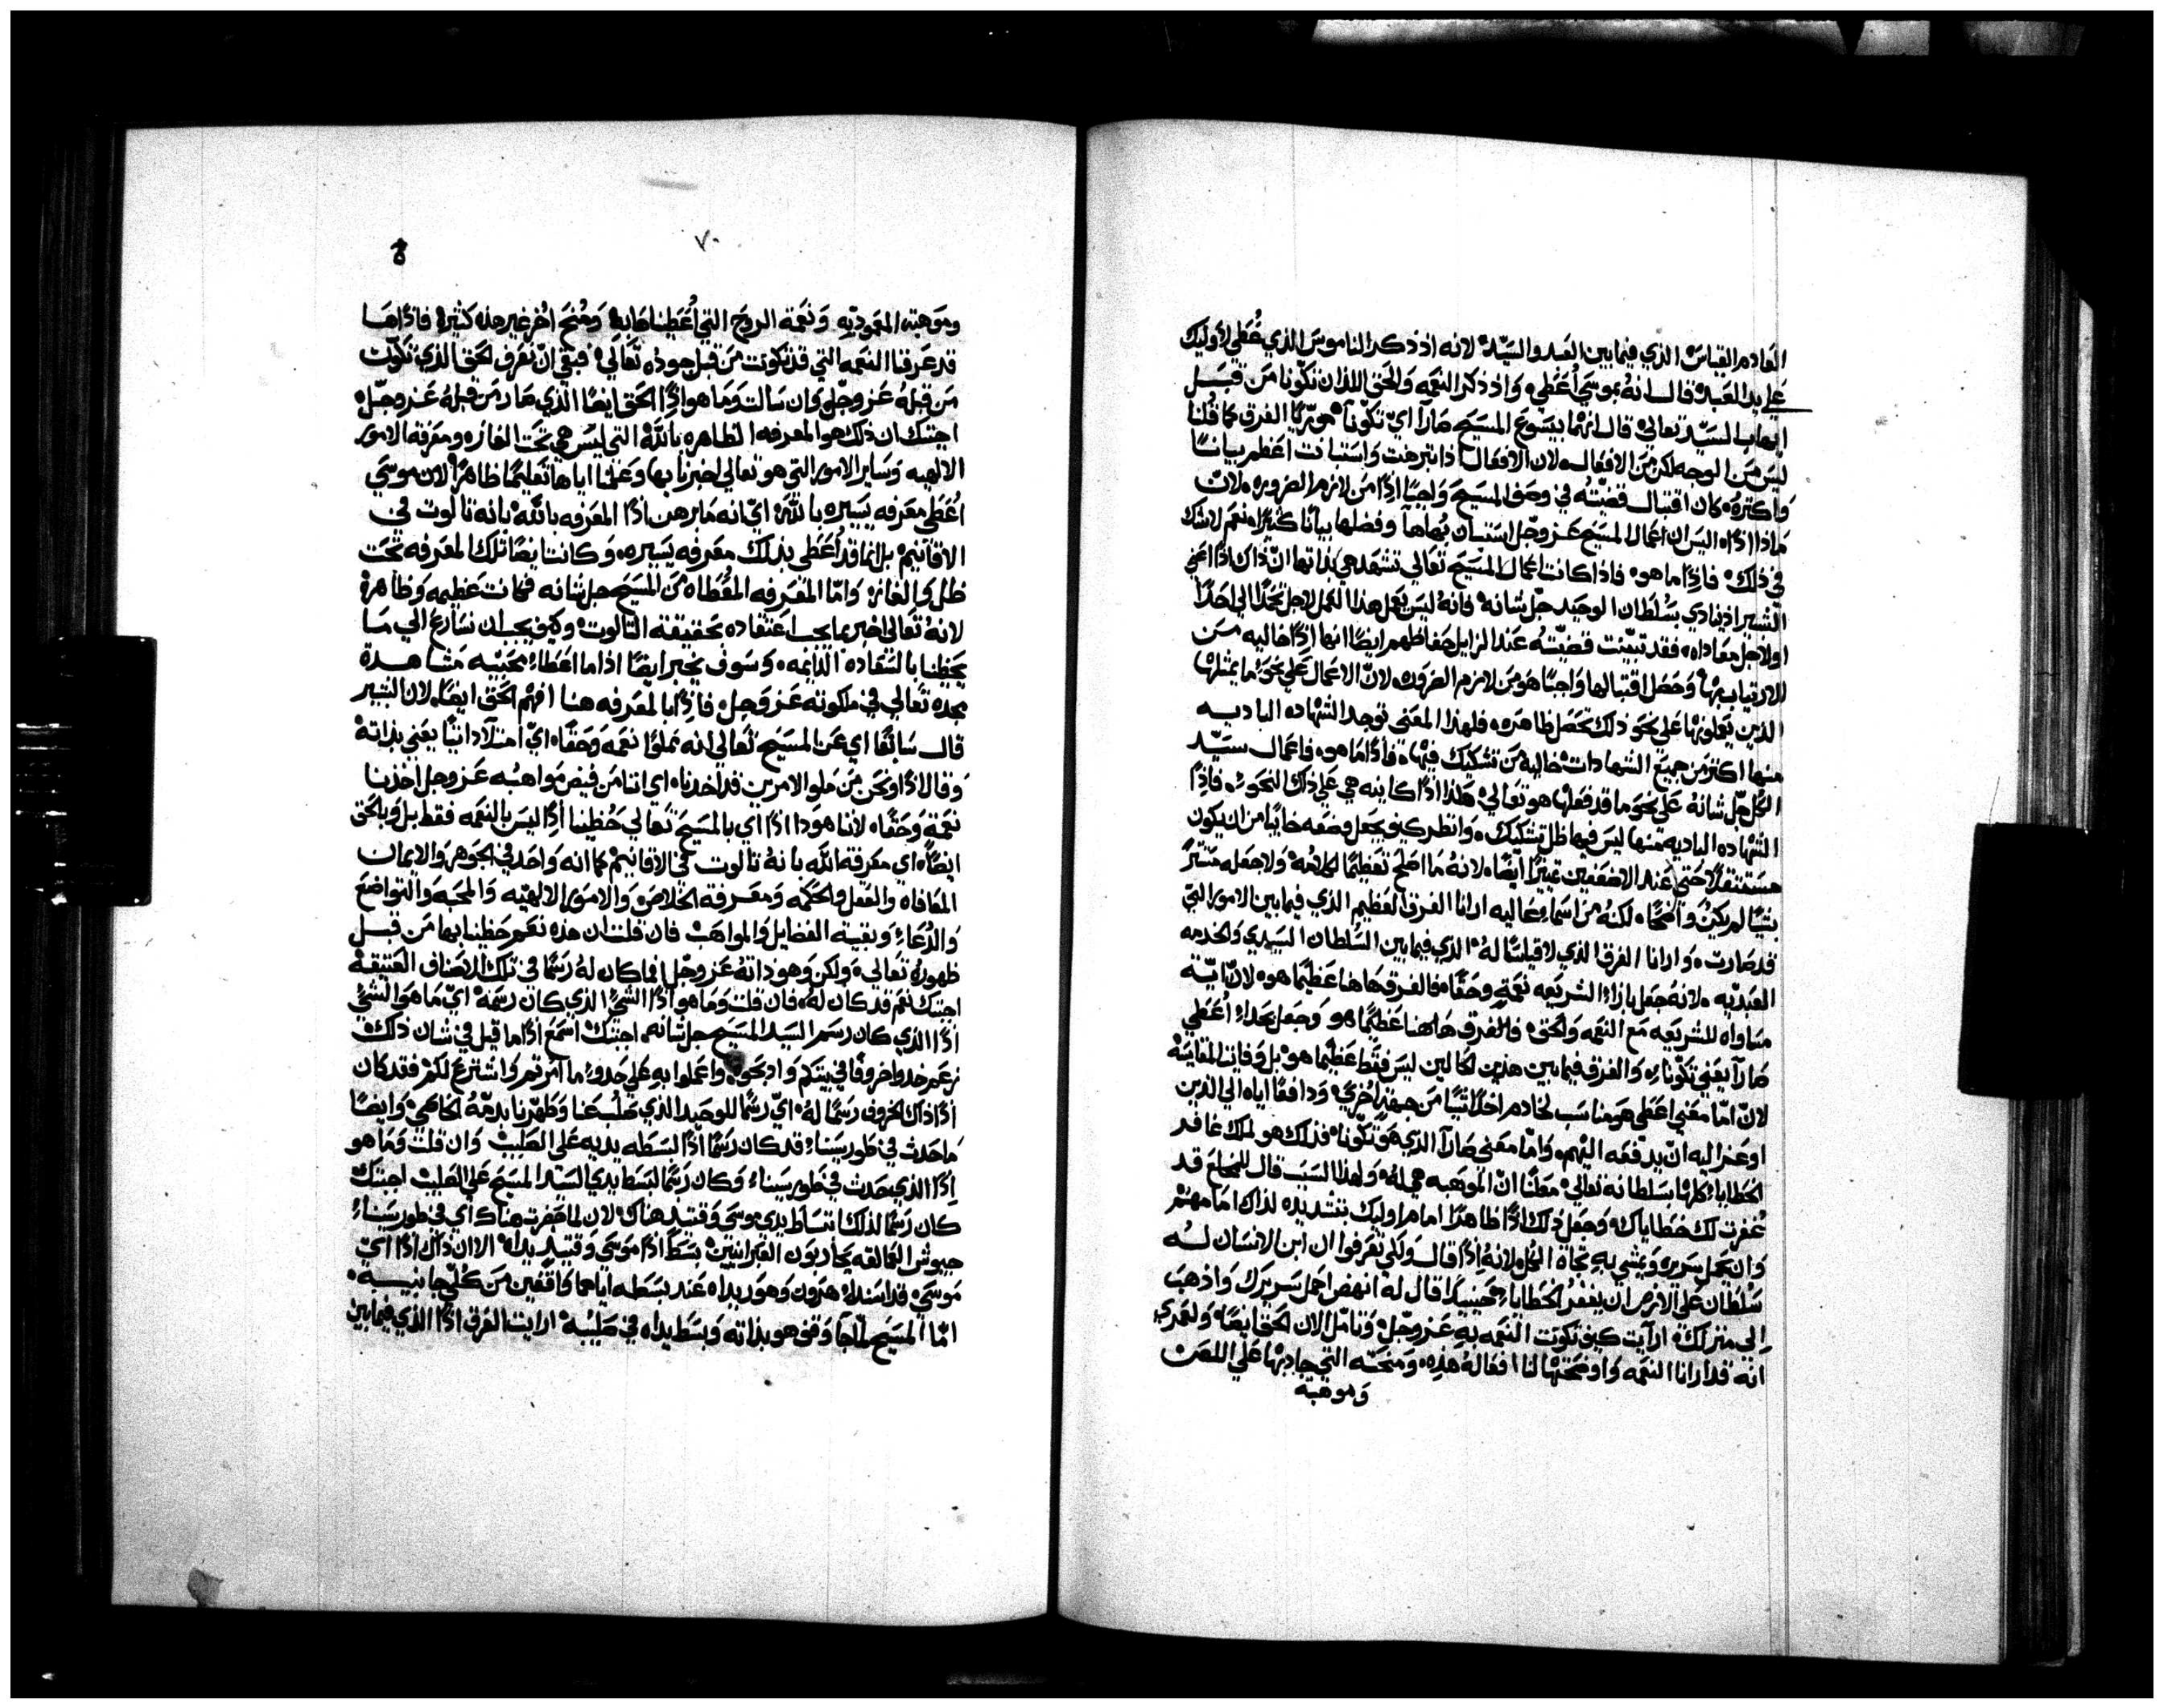 العادم القياس الذي فيما بين العبد والسيّد لانه اذ ذكر الناموس الذي عُطي لاوليك
علي يد العبد قال انهُ بموسي اُعطي واذ ذكر النعمه والحق اللذان تكّونا من قبل
ايهاب السيّد تعالي قال انهُما بيسوع المسيح صارا ايّ تكّونا هو تريّا الفرق كما قلنا
ليس من الوجه لكن من الافعال لان الافعال اذا تبرهنت واستبانت اعظم بياناً
واكثرهُ كان اقتبال قضيّتُه في وصف المسيح واجباً اذاً من لازم الضروره لانّ
ماذا اذاً اليس ان اعمال المسيح عز وجل استبان بهاها وفضلها بياناً كثيراً نعم لاشك
في ذلك فاذاً ما هو فاذا كانت اعمال المسيح تعالي تشهد هي بذاتها انّ ذاك اذاً اعني
البشير اذ نادي بسُلطان الوحيد جلّ شانهُ فانهُ ليس بعمل هذا العمل لاجل تحدّاً الي احداً
اولاجل معاداه فقد تبيّنت قضيّتُه عند الزايل حفاظهم ايضاً انها اذاً خاليه من
الارتياب بها وحصل اقتبالها واجباً هو من لازم الضروره لانّ الاعمال علي نحو ما يمثلها
الذين يعملونها علي نحو ذلك تحصل ظاهره فلهذا المعني توجد الشهاده الباديه
منها اكثر من جميع الشهادات خالية من تشكيك فيها فاذاً ما هو فاعمال سيّد
الكُل جلّ شانهُ علي نحو ما قد فعلها هو تعالي هكذا اذاً كاينه هي علي ذاك النحو فاذاً
الشهاده الباديه منها ليس فيها ظل تشكيك وانظر كيف يجعل وضعه خايباً من ان يكون
مستثقلاً حتي عند الاضعفين تميّزاً ايضاً لانهُ ما اصلح تعظيماً لكلامه ولا جعله متشرّ
بشيّا لم يكن واضحاً لكنهُ من اسماء عاليه ارانا الفرق العظيم الذي فيما بين الامور التي
قد صارت وارانا الفرق الذي لا قياسَ لهُ الذي فيما بين السُلطان السيدي والخدمه
العبديه لانهُ جعل بازاء الشريعه نعمة وحقاً فالفرق هاهنا عظيماً هو لانّ ايّة
مساواه للشريعه مع النعمه والحق فالفرق هاهنا عظيماً هو وجعل بحداء اُعطي
صارا يعني تكّونا والفرق فيما بين هذين الحالين ليس فقط عظيماً هو بل وفايت المقايسه
لانّ امّا معني اعطي هو مناسب لخادم اخذ اشيّاً من جهه اُخري ودافعاً اياه الي الذين
اوعز اليه انّ يدفعه اليهم وامّا معني صارا الذي هو تكّونا فذلك هو لملك غافر
الخطاياء كلها بسلطانه تعالي معلناً انّ الموهبه هي لهُ ولهذا السبب قال للمخلع قد
غُفرت لك خطاياك وجعل ذلك اذاً ظاهراً امام اوليك بتشديده لذاك امامهم
وان يحمل سريره ويمشي به تجاة الكُل لانهُ اذاً قال ولكي تعرفوا ان ابن الانسان لهُ
سلطان علي الارض ان يغفر الخطاياء حينيذ قال لهُ انهض احمل سريرك واذهب
الى منزلك ارآيت كيف تكونت النعمه به عز وجلّ وتامّل الان الحق ايضاً ولعمري
انهُ قد ارانا النعمه واوضحتها لنا افعالهُ هذه ومنحته التي جاد بها علي اللص
وموهبة
٧٠
وموهبته المعموديّه ونعمة الروح التي اُعطيناها به ومُنح اُخر غير هذه كثيرة فاذاً اما
قد عرفنا النعمه التي قد تكونت من قبل جوده تعالي فبقي انّ نعرف الحق الذي تكّون
من قبلهُ عز وجلّ وان سالت وما هو اذاً الحق ايضاً الذي صار من قبلهُ عز وجلّ
اجبتك ان ذلك هو المعرفه الظاهره باللهُ التي ليس هي تحت الغازه ومعرفة الامور
الالهيه وساير الامور التي هو تعالي اخبرنا بها وعلمنا اياها تعليماً ظاهراً لان موسي
اُعطي معرفه يسيره باللهُ ايّ انه ما برهن اذاً المعرفه باللهُ بانه ثالوث في
الاقانيم بل انما قد اُعطي بذلك معرفه يسيره وكانت ايضاً تلك المعرفه تحت
ظل والغازه وامّا المعرفه المُعطاه من المسيح جل شانه فكانت عظيمه وظاهرة
لانهُ تعالي اخبر بما يجب اعتقاده بحقيقة الثالوث وكيف يجب ان نسارع الي ما
يحظينا بالسعاده الدايمه وسوف يخبر ايضاً اذا ما اعطاء محبّيه مشاهدة
مجده تعالي في ملكوته عز وجل فاذاً بالمعرفه هنا افهم الحق ايضاً لان البشير
قال سابقاً اي عن المسيح تعالي انه مملوًا نعمه وحقاً ايّ امتلآ ذاتياً يعني بذاته
وقال اذاً ونحن من ملو الامرين قد اخذنا اي اننا من فيض مواهبه عز وجل اخذنا
نعمة وحقاً لاننا هوذا اذاً اي بالمسيح تعالي حُظينا اذاً ليس بالنعمه فقط بل وبالحق
ايضاً اي معرفة اللّه بانهُ ثالوث في الاقانيم كما انه واحد في الجوهر والايمان
المعافاه والعقل والحكمه ومعرفة الخلاص والامور الالهيّه والمحبه والتواضع
والدُعاء وبقية الفضايل والمواهب فان قلت ان هذه نعم حظينا بها من قبل
ظهورهُ تعالي ولكن وهو ذاتهُ عز وجلّ افما كان لهُ رسماً في تلك الاصناف العتيقة
اجبتك نعم قد كان لهُ فان قلت وما هو اذاً الشيّ الذي كان رسمه ايّ ما هو الشيّ
اذاً الذي كان رسم السيد المسيح جل شانه اجبتك اسمع اذاً ما قيل في شان ذلك
زعم خذوا خروفاً في بيتكم واذبحوه واعملوا به علي حدو ما اُمرتم واشترع لكم فقد كان
اذاً ذاك الخروف رسماً لهُ ايّ رسماً للوحيد الذي صُلب عنا وطهرنا بدمّهُ الخاصيّ وايضاً
ما حدث في طور سيناء قد كان رسماً اذاً لبسطه يديه علي الصليب وان قلت وما هو
اذاً الذي حدث في طور سيناء وكان رسماً لبسط يدي السيد المسيح علي الصليب اجبتك
كان رسماً لذلك انبساط يدي موسي وقتيذ هناك لان لما حضرت هناك اي في طور سيناء
جيوش العمالقه يحاربون العبرانيين بسط اذاً موسي وقتيذ يداه الا ان ذاك اذاً ايّ
موسي قد اسنداه هرون وهور يداه عند بسطه اياهما واقفين من كُلّي جانبيه
امّا المسيح لما جآ وقف هو بذاته وبسط يداه في صليبه ارايت الفرق اذاً الذي فيما بين